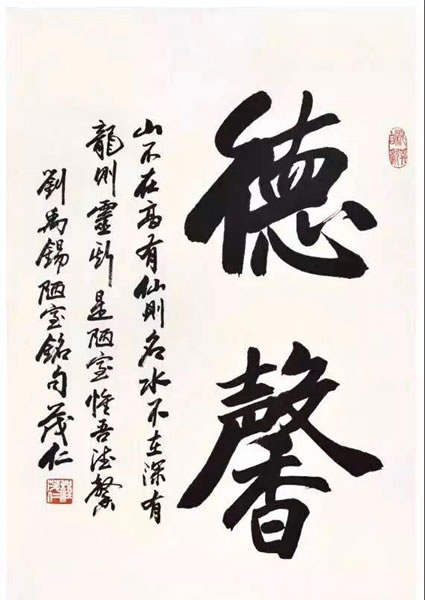 德馨
山不在高有仙則名水不在深有
龍則靈斯是陋室惟吾德馨
劉禹錫陋室銘句茂仁